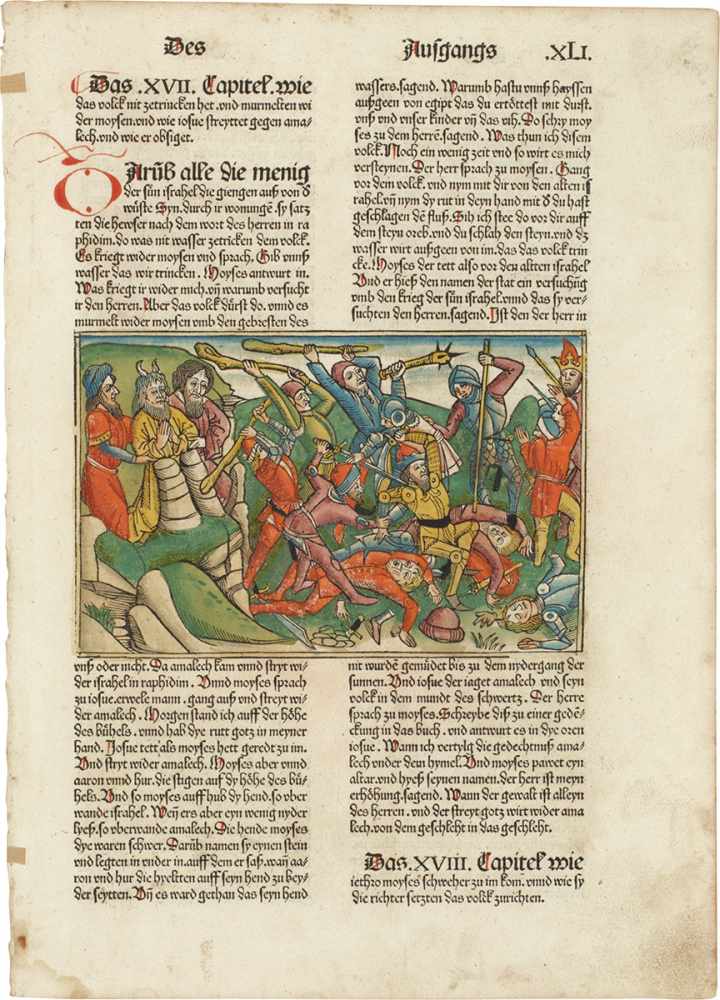 Des
Ausgangs .XLI.
Das .XVII. Capitel. wie
das volck nit zetrincken het. vnd murmelten wi
der moysen. vnd wie iosue streyttet gegen ama⸗
lech. vnd wie er obsiget.
DArūb alle die menig
der sün israhel die giengen auß von d̕
wüste Syn. durch ir wonungē. sy satz
ten die hewser nach dem wort des herren in ra
phidim. do was nit wasser zetricken dem volck.
Es kriegt wider moysen vnd sprach. Gib vnnß
wasser das wir trincken. Moyses antwurt in.
Was kriegt ir wider mich. vn̄ warumb versucht
ir den herren. Aber das volck dürst do. vnnd es
murmelt wider moysen vmb den gebresten des
wassers. sagend. Warumb hastu vnnß hayssen
außgeen von egipt das du ertöttest mit durst.
vnß vnd vnser kinder vn̄ das vih. Do schry moy
ses zu dem herrē. sagend. Was thun ich disem
volck. Noch ein wenig zeit vnd so wirt es mich
versteynen. Der herr sprach zu moysen. Gang
vor dem volck. vnd nym mit dir von den alten is
rahel. vn̄ nym dy rut in deyn hand mit d̕ du hast
geschlagen dē fluß. Sih ich stee do vor dir auff
dem steyn oreb. vnd du schlah den steyn. vnd dz
wasser wirt außgeen von im. das das volck trin
cke. Moyses der tett also vor den altten israhel
Vnd er hieß den namen der stat ein versuchūg
vmb den krieg der sün israhel. vnnd das sy ver⸗
suchten den herren. sagend. Ist den der herr in
vnß oder nicht. Da amalech kam vnnd stryt wi⸗
der israhel in raphidim. Vnnd moyses sprach
zu iosue. erwele mann. gang auß vnd streyt wi⸗
der amalech. Morgen stand ich auff der höhe
des bühels. vnnd hab dye rutt gotz in meyner
hand. Iosue tett als moyses hett geredt zu im.
Vnd stryt wider amalech. Moyses aber vnnd
aaron vnnd hur. die stigen auf dy höhe des bü⸗
hels. Vnd so moyses auff hub dy hend. so vber
wande israhel. Wen̄ ers aber eyn wenig nyder
lyeß. so vberwande amalech. Die hende moyses
dye waren schwer. Darūb namen sy eynen stein
vnd legten in vnder in. auff dem er saß. wan̄ aa⸗
ron vnd hur die hyeltten auff seyn hend zu bey⸗
der seytten. Vn̄ es ward gethan das seyn hend
nit wurdē gemüdet bis zu dem nydergang der
sunnen. Vnd iosue der iaget amalech vnd seyn
volck in dem mundt des schwertz. Der herre
sprach zu moyses. Schreybe diß zu einer gedē⸗
ckung in das buch. vnd antwurt es in dye oren
iosue. Wann ich vertylg die gedechtnuß ama⸗
lech vnder deun hymel. Vnd moyses pawet eyn
altar. vnd hyeß seynen namen. der herr ist meyn
erhöhung. sagend. Wann der gewalt ist alleyn
des herren. vnd der streyt gotz wirt wider ama
lech. von dem geschlecht in das geschlecht.
Das .XVIII. Capitel wie
iethro moyses schweher zu im kom. vnnd wie sy
die richter setzten das volck zurichten.